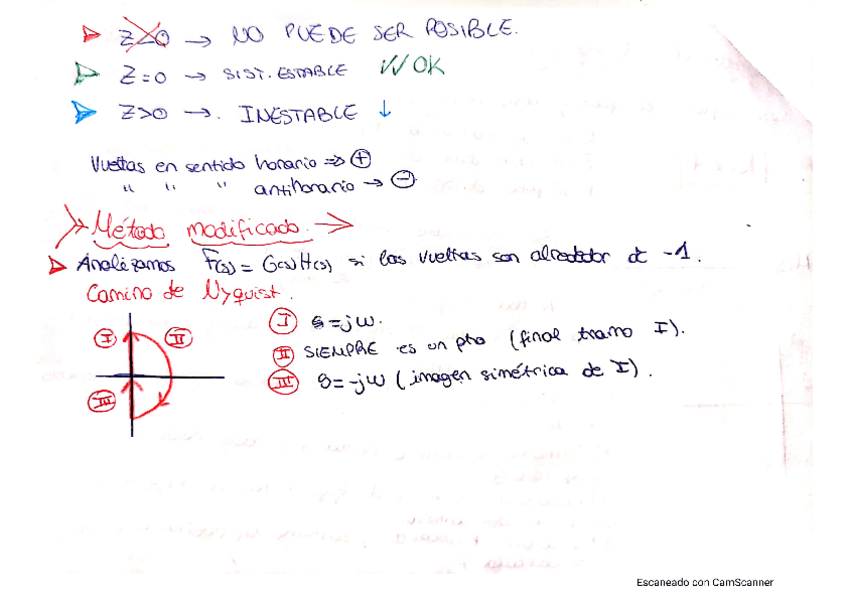 Z<0 → NO PUEDE SER POSIBLE.
Z=0 → SIST. ESTABLE VV OK
Z>0 →. INESTABLE ↓
Vueltas en sentido horario => ⊕
" " " antihorario → ⊖
Método modificado. →
Analizamos F(s) = G(s)H(s) si las vueltas son alrededor de -1.
Camino de Nyquist.
I s=jω.
II SIEMPRE es un pto (final tramo I).
III s=-jω (imagen simétrica de I).
I II
III
Escaneado con CamScanner